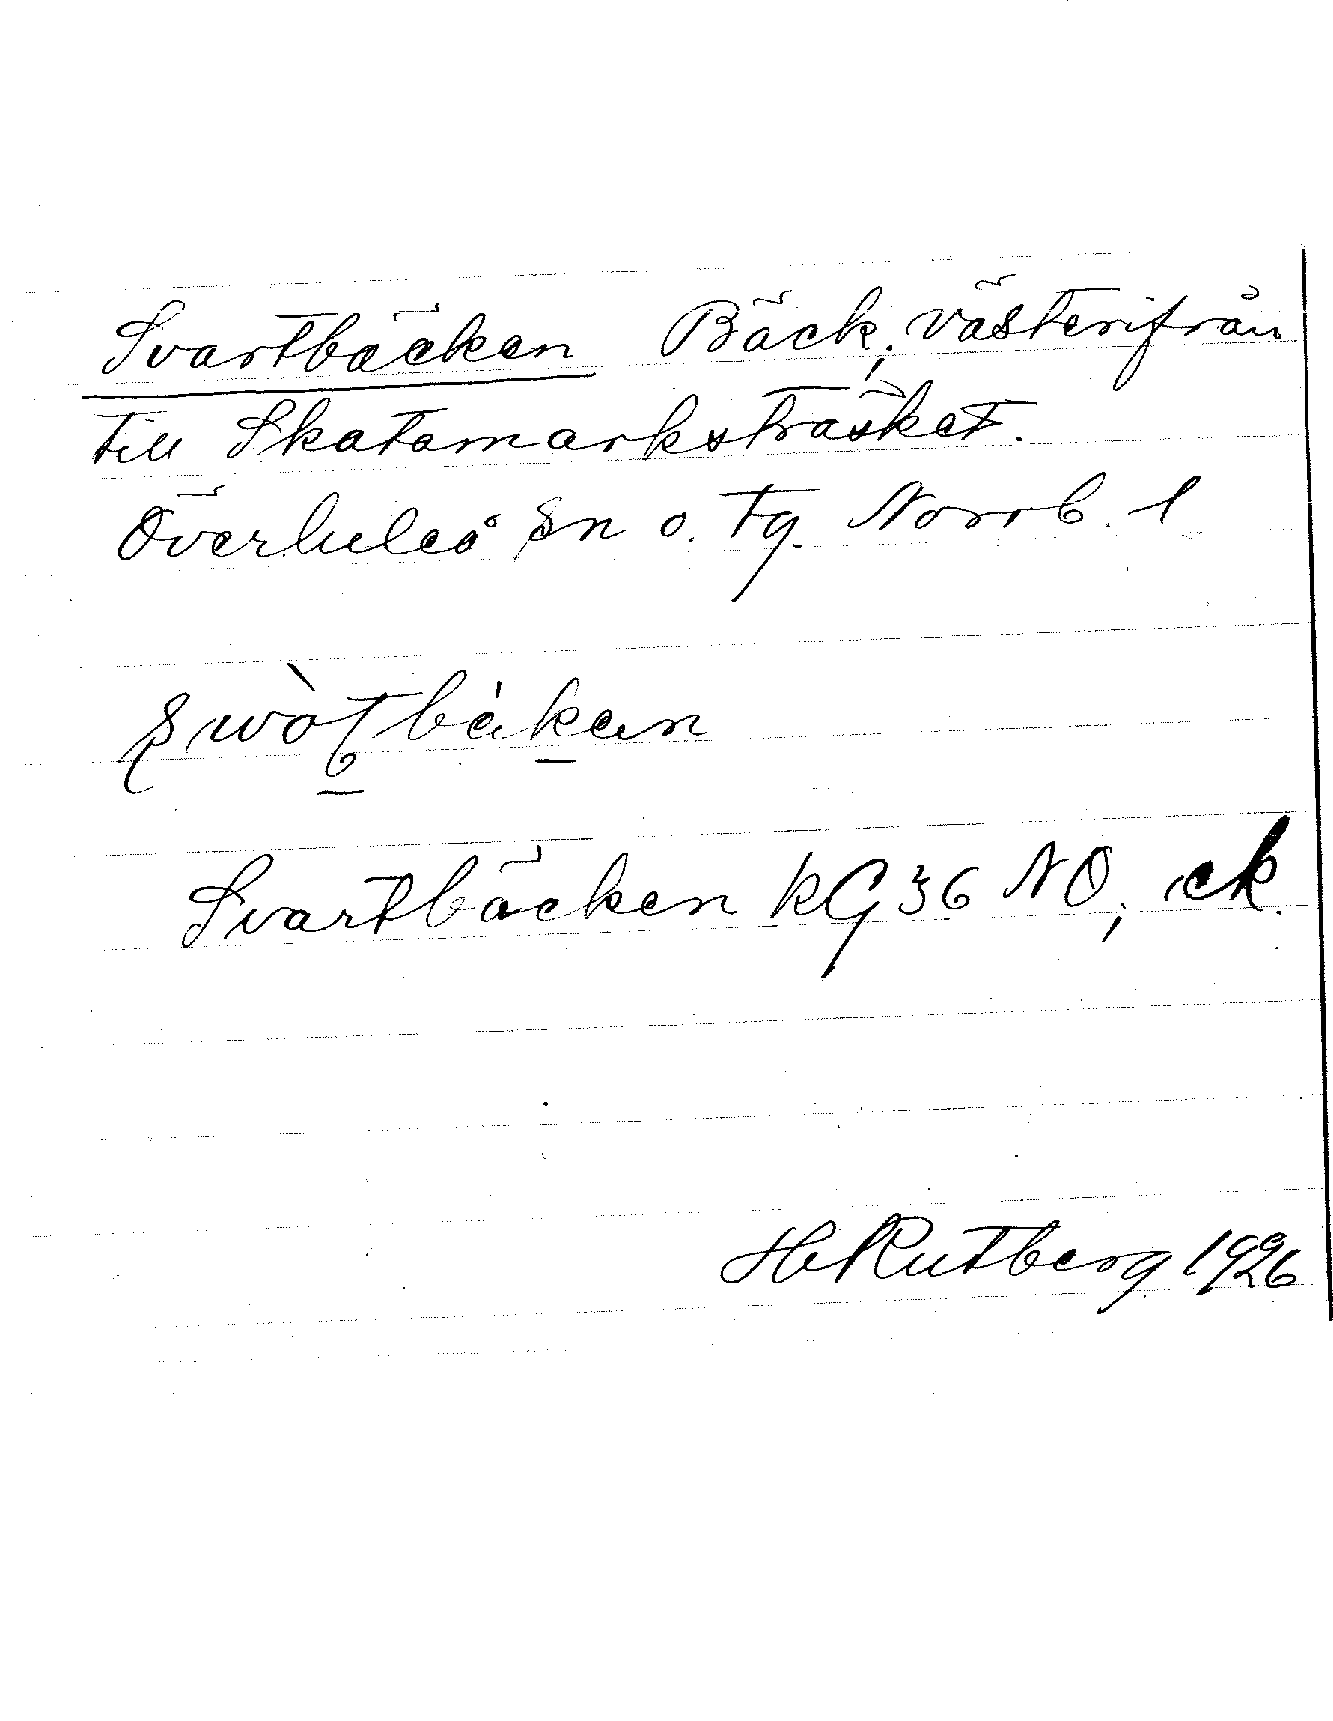 Svartbäcken Bäck, västerifrån
till Skatamarksträsket.
Överluleå sn o. tg. Norrb. l
Svartbäcken kG 36 NO, ek.
H Rutberg 1926